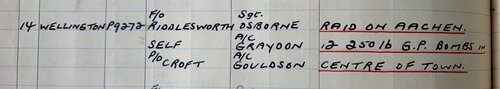 F/O Sgt.
14 WELLINGTON P9272 RIDDLESWORTH OSBORNE RAID ON AACHEN.
A/C
SELF GRAYDON 12 250 lb G.P. BOMBS IN
P/O A/C
CROFT GOULDSON CENTRE OF TOWN.